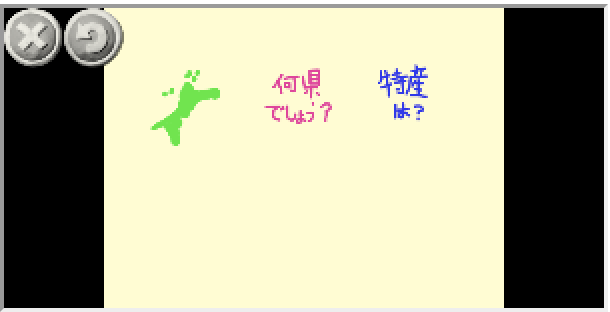 何県
でしょう?
特産
は?